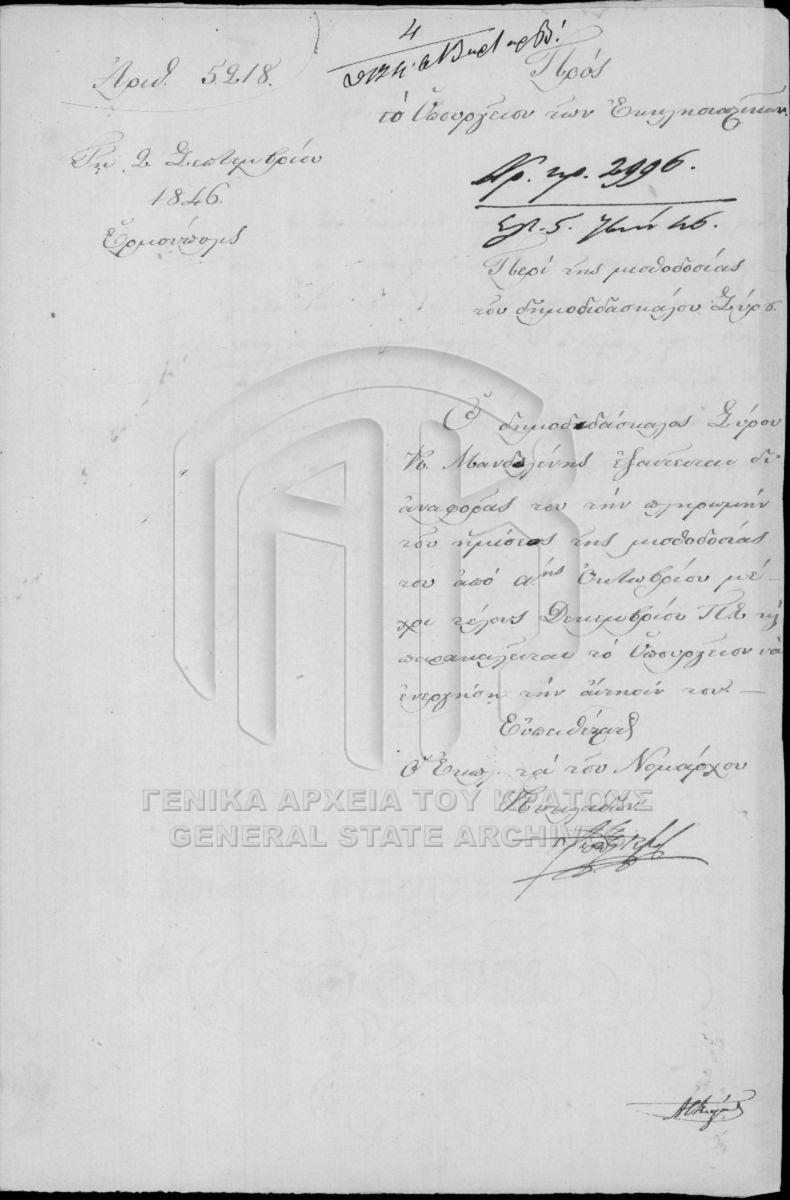 4
Ἀριθ. 5218.
Πρός
τό Ὑπουργεῖον των Ἐκκλησιαστικων.
Τῃ 2 Σεπτεμβρίου
1846.
Ἑρμούπολις
Ἀρ. πρ. 2996.
5. 46.
Περί της μισθοδοσίας
του δημοδιδασκάλου Σύρου.
Ὁ δημοδιδάσκαλος Σύρου
Κ. Μανδ ἐξαιτειται δι'
ἀναφορας του την πληρωμήν
του ἡμίσεος της μισθοδοσίας
του ἀπό α.ης Ὀκτωβρίου μέ-
χρι τέλους Δεκεμβρίου Π.Ε κ
παρακαλειται τό Ὑπουργεῖον νά
ἐνεργήση την αἴτησίν του. —
Εὐπειθέστατος
Ὁ Ἐκπλ. τά του Νομάρχου
Κυκλάδων
ΓΕΝΙΚΑ ΑΡΧΕΙΑ ΤΟΥ ΚΡΑΤΟΥΣ
GENERAL STATE ARCHIVES